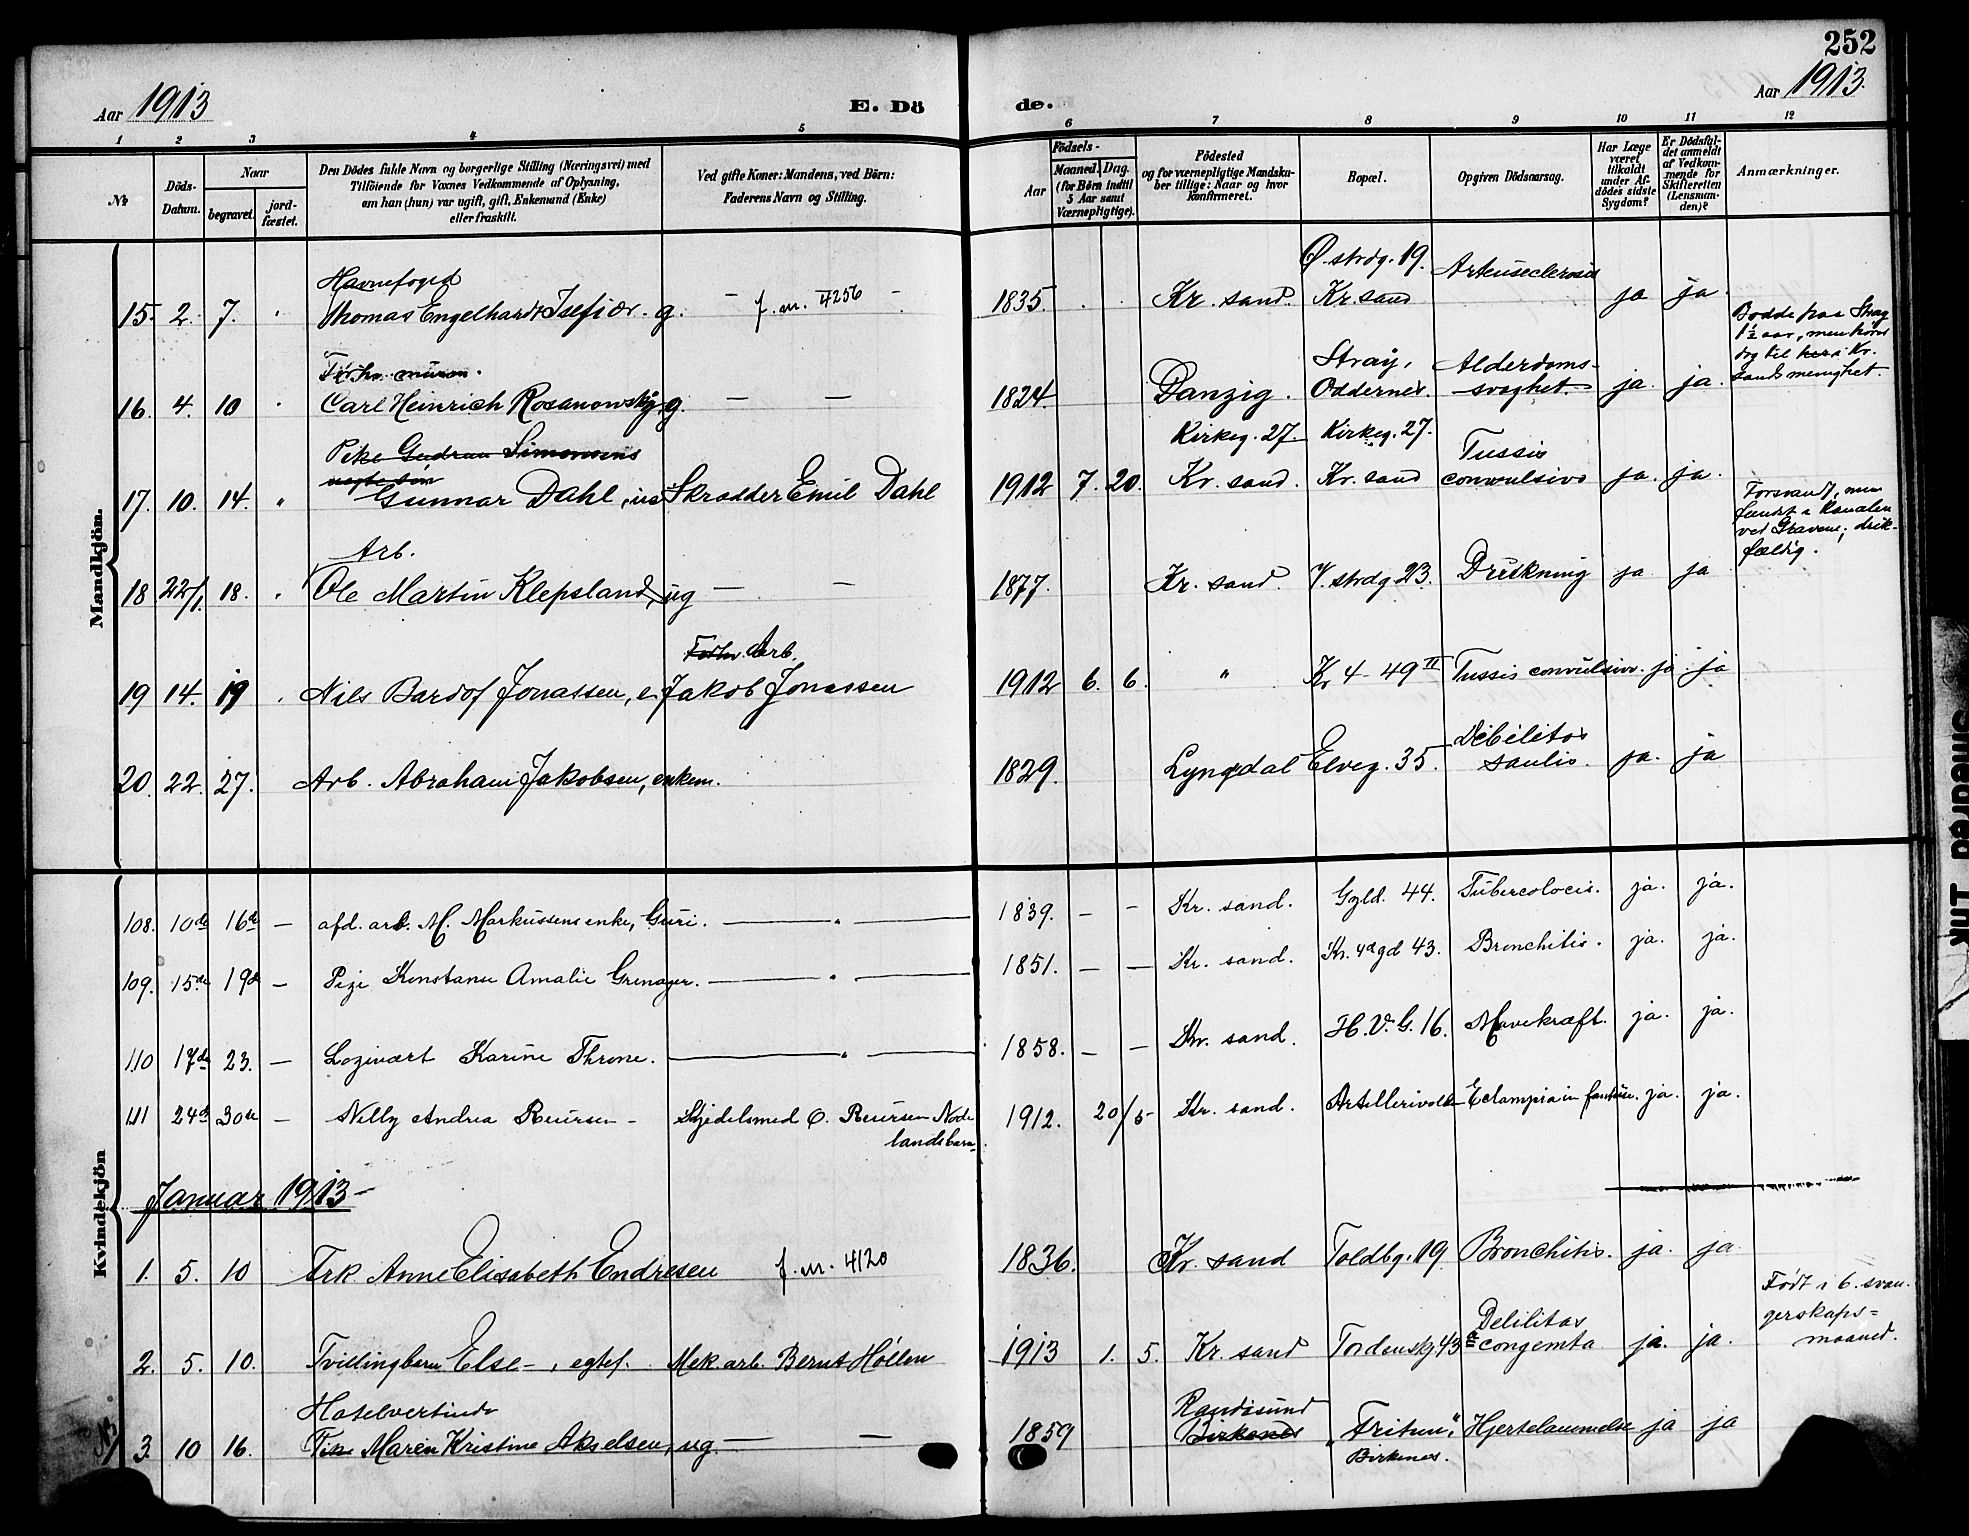 252
Aar 1913
E. Dö de.
Aar 1913.
1 2 3 4 5 6 7 8 9 10 11 12
No
Döds-Datum.
Naar
begravet.
jord-fæstet.
Den Dödes fulde Navn og borgerlige Stilling (Næringsvei) med
Tilföiende for Voxnes Vedkommende af Oplysning,
om han (hun) var ugift, gift, Enkemand (Enke)
eller fraskilt.
Ved gifte Koner: Mandens, ved Börn:
Faderens Navn og Stilling.
Födsels-
Aar
Maaned. Dag.
(for Börn indtil
5 Aar samt
Værnepligtige).
Födested
og for værnepligtige Mandska-
ber tillige: Naar og hvor
konfirmeret.
Bopæl.
Opgiven Dödsaarsag.
Har Læge
været
tilkaldt
under Af-
dödes sidste
Sygdom?
Er Dödsfal-
det anmeldt
af Vedkom-
mende for
Skifteretten
(Lensman-
den)?
Anmærkninger.
Mandkjön.
Havnefoged Ø. strdg. 19.
15. 2. 7. Thomas Engelhardt Isefiær. g. — f. m. 4256 — 1835. Kr. sand. Kr. sand ja ja
Strai,
16. 4. 10 Carl Heinrich Rosanowsky, g. — — 1824. Danzig. Oddernes. Alderdoms-svaghet. ja. ja.
Bodde paa Stray
1½ aar, men hører
dog til Kr.
sands menighet
Pike Gudrun Simonsens Kirkeg. 27. Kirkeg. 27.
uegte søn
17. 10. 14. " Gunnar Dahl, Skrædder Emil Dahl 1912 7. 20. Kr. sand. Kr. sand Tussis convulsiva ja. ja.
Forsvandt, men
fandt i Kanalen
ved Gravene; drik-
fældig.
Arb.
18 22/1. 18. Ole Martin Klepsland, ug — — 1877. Kr. sand. V. strdg 23. Drukning ja ja
Forhv. Arb.
19 14. 19 Nils Bardof Jonassen, e. Jakob Jonassen 1912 6. 6. " Kr 4 - 49 II Tussis convulsiv. ja. ja
20. 22. 27. Arb. Abraham Jakobsen, enkem. 1829. Lyngdal Elveg. 35. Debilitas senilis. ja. ja
Kvindekjön
108. 10de 16de — afd. arb. M. Markussens enke, Guri. — " — 1839. — — Kr. sand. Gyld. 44. Tubercolocis. ja. ja.
109. 15de 19de — Pige Konstance Amalie Grenager. — " — 1851. — — Kr. sand. Kr. 4de gd 43. Bronchitis. ja. ja.
110 17de 23. — Logivært Karine Throne. — " — 1858. — — Kr. sand. H. V. G. 16. Mavekræft. ja. ja.
111 24de 30te — Nelly Andrea Reiersen — O. Reiersen 1912. 20/5 Kr. sand. Artillerivold Eclampia in fantise. ja. ja.
Januar 1913
1. 5. 10 Frk Anne Elisabeth Endresen f. m. 4120 1836. Kr. sand Toldbg. 19 Bronchitis. ja. ja
2. 5. 10. Tvillingbarn Else —, egtef. Mek. arb. Bernt Hollen 1913 1. 5. Kr. sand Tordenskj. 43 Debilitas congenita ja. ja.
Født i 6. svan-
gerskaps-
maaned.
Hotelvertinde Randøsund
3. 10 16. Pike Maren Kristine Akselsen, ug. — — 1859 Birkenes "Triton", Birkenes. Hjertelammelse ja ja